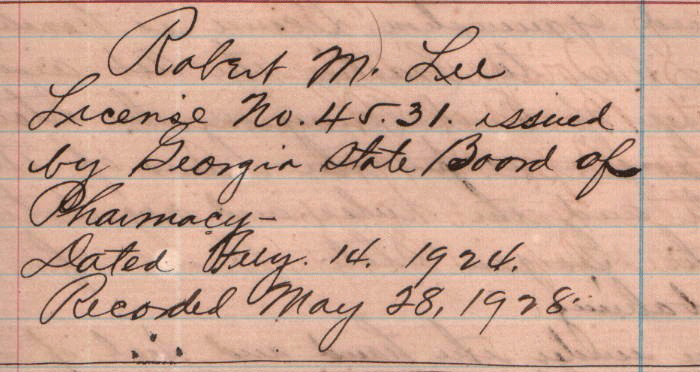 Robert M. Lee
License No. 45.31. issued
by Georgia State Board of
Pharmacy-
Dated 14. 1924.
Recorded May 28, 1928.